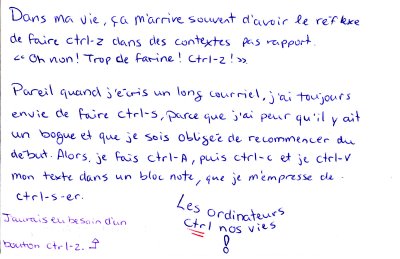 Dans ma vie, ça m'arrive souvent d'avoir le réflexe
de faire ctrl-z dans des contextes pas rapport.
« Oh non! Trop de farine! Ctrl-z! ».
Pareil quand j'écris un long courriel, j'ai toujours
envie de faire ctrl-s, parce que j'ai peur qu'il y ait
un bogue et que je sois obligée de recommencer du
début. Alors, je fais ctrl-A, puis ctrl-c et je ctrl-v
mon texte dans un bloc note, que je m'empresse de
ctrl-s-er.
J'aurais eu besoin d'un
bouton ctrl-z.
Les ordinateurs
ctrl nos vies
!